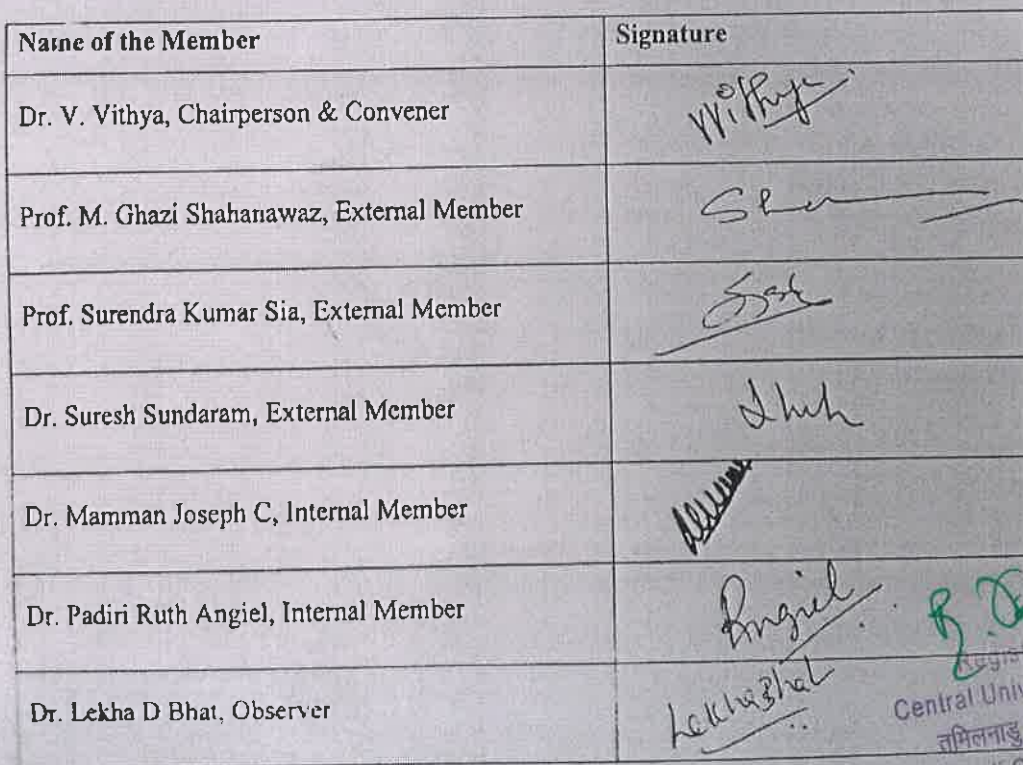 Name of the Member Signature
Dr. V. Vithya, Chairperson & Convener Vithya
Prof. M. Ghazi Shahanawaz, External Member
Prof. Surendra Kumar Sia, External Member
Dr. Suresh Sundaram, External Member
Dr. Mamman Joseph C, Internal Member
Dr. Padiri Ruth Angiel, Internal Member Rngiel
Dr. Lekha D Bhat, Observer LekhaBhat
Central Univ
तमिलनाडु